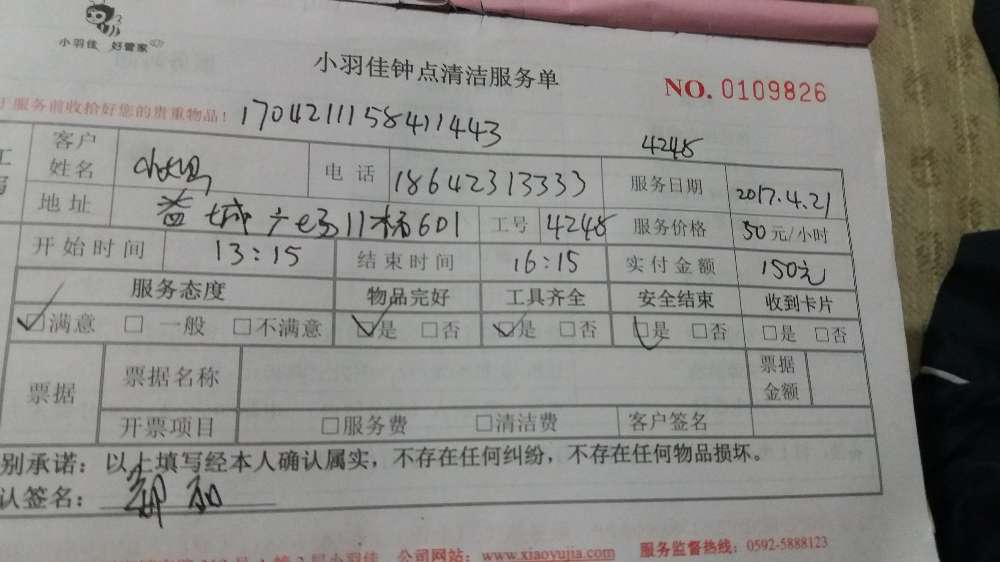 小羽佳 好管家
小羽佳钟点清洁服务单
NO. 0109826
于服务前收拾好您的贵重物品! 1704211158411443
4248
客户姓名 电话 18642313333 服务日期 2017.4.21
地址 益城 11栋601 工号 4248 服务价格 50元/小时
开始时间 13:15 结束时间 16:15 实付金额 150元
服务态度 物品完好 工具齐全 安全结束 收到卡片
☑满意 □一般 □不满意 ☑是 □否 ☑是 □否 ☑是 □否 □是 □否
票据 票据名称 票据金额
开票项目 □服务费 □清洁费 客户签名
别承诺：以上填写经本人确认属实，不存在任何纠纷，不存在任何物品损坏。
认签名：
小羽佳 公司网站：www.xiaoyujia.com 服务监督热线：0592-5888123